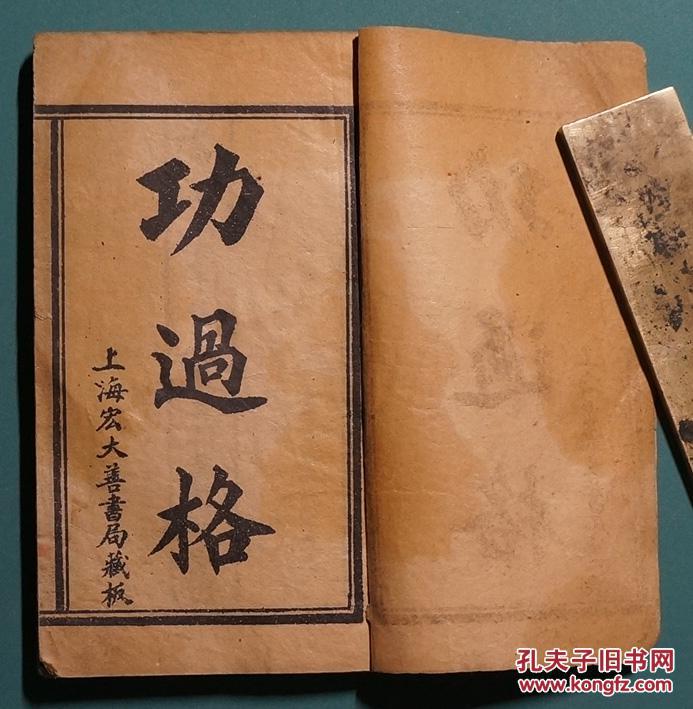 功過格
上海宏大善書局藏板
孔夫子旧书网
www.kongfz.com